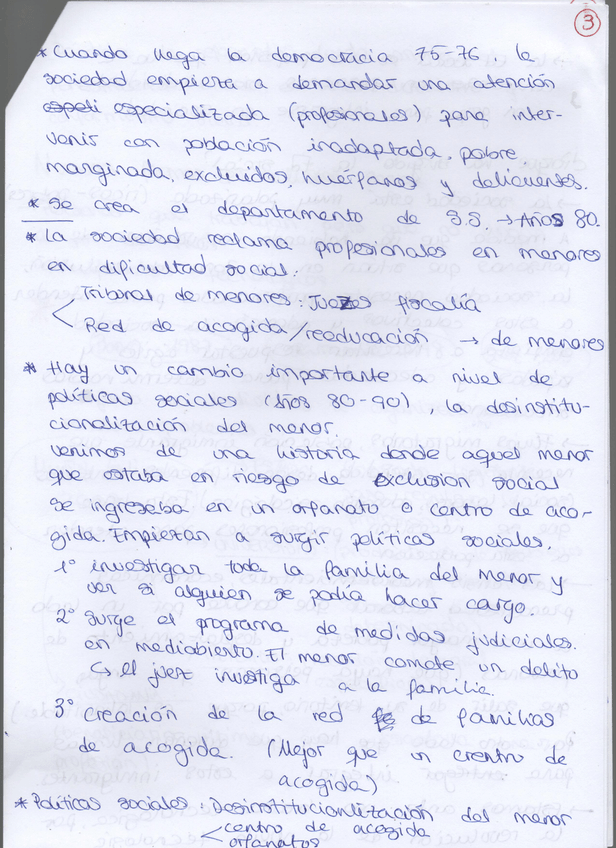 3
* Cuando llega la democracia 75-76 la
sociedad empieza a demandar una atención
espeti especializada (profesionales) para inter-
venir con población inadaptada, pobre
marginada, excluidos, huérfanos y delicuentes.
* Se crea el departamento de S.S. → Años 80.
* La sociedad reclama profesionales en menores
en dificultad social.
< Tribunal de menores. Juezes fiscalía
Red de acogida/reeducación → de menores
* Hay un cambio importante a nivel de
políticas sociales (Años 80-90), la desinstitu-
cionalización del menor.
venimos de una historia donde aquel menor
que estaba en riesgo de Exclusion social
se ingresaba en un orfanato o centro de aco-
gida. Empiezan a surgir políticas sociales.
1º investigar toda la familia del menor y
ver si alguien se podía hacer cargo.
2º surge el programa de medidas judiciales.
en mediobierto. El menor comete un delito
↳ el juez investiga a la familia.
3º creación de la red de familias
de acogida. (Mejor que un crentro de
acogida)
* Políticas sociales: Desinstitucionlización del menor
< centro de acogida
orfanatos